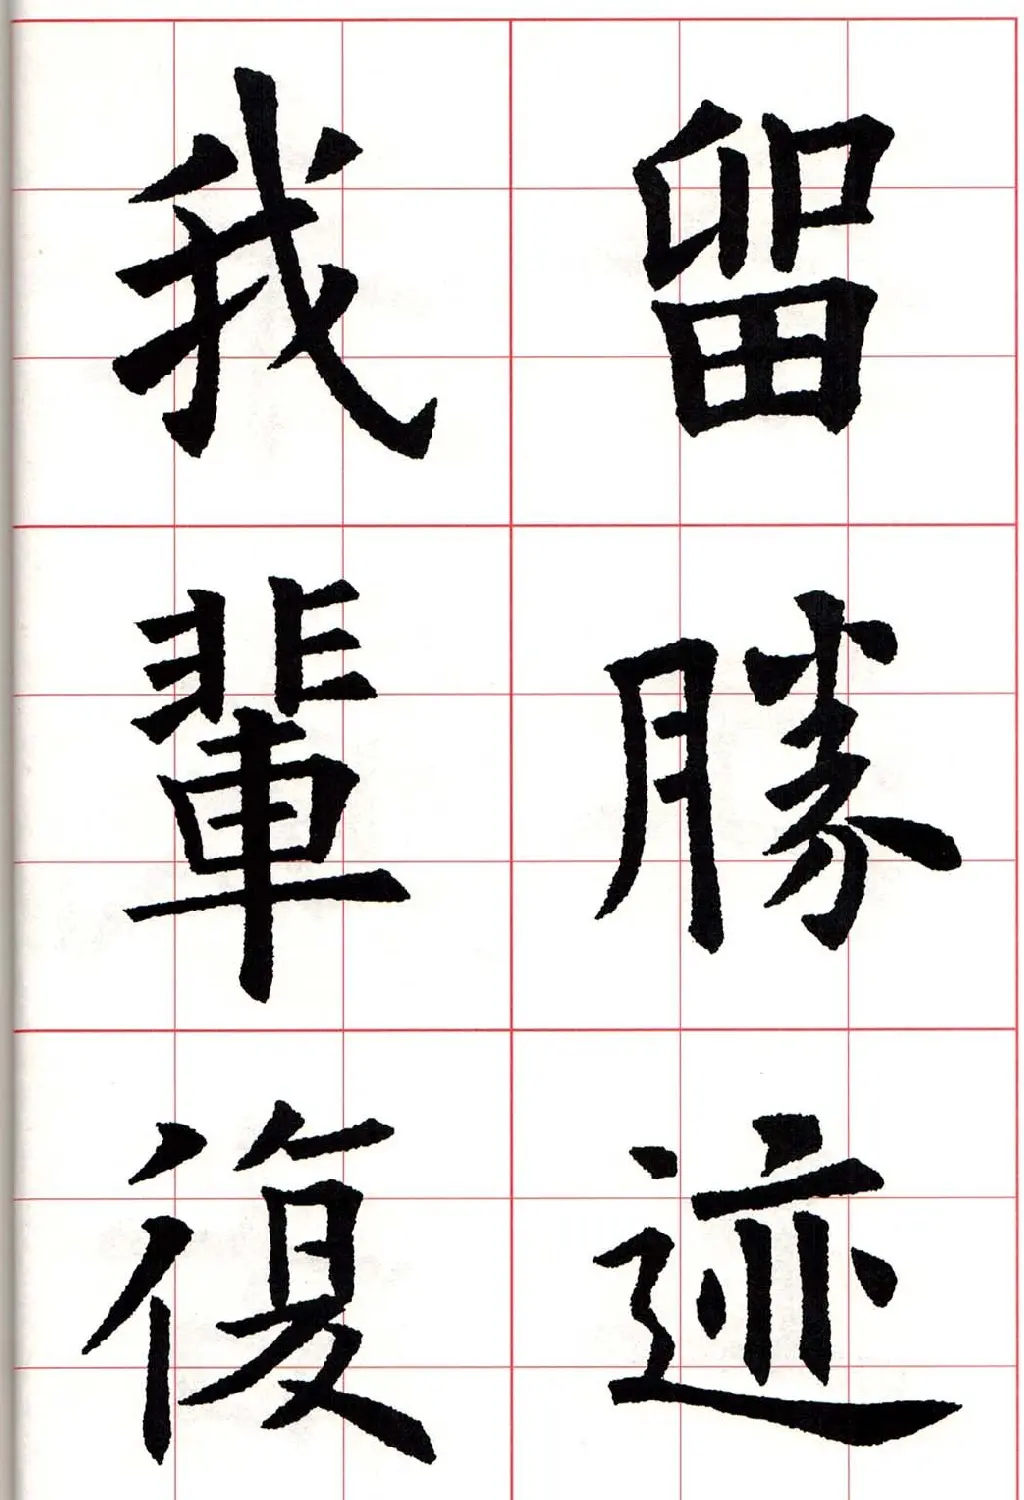 留勝迹
我輩復